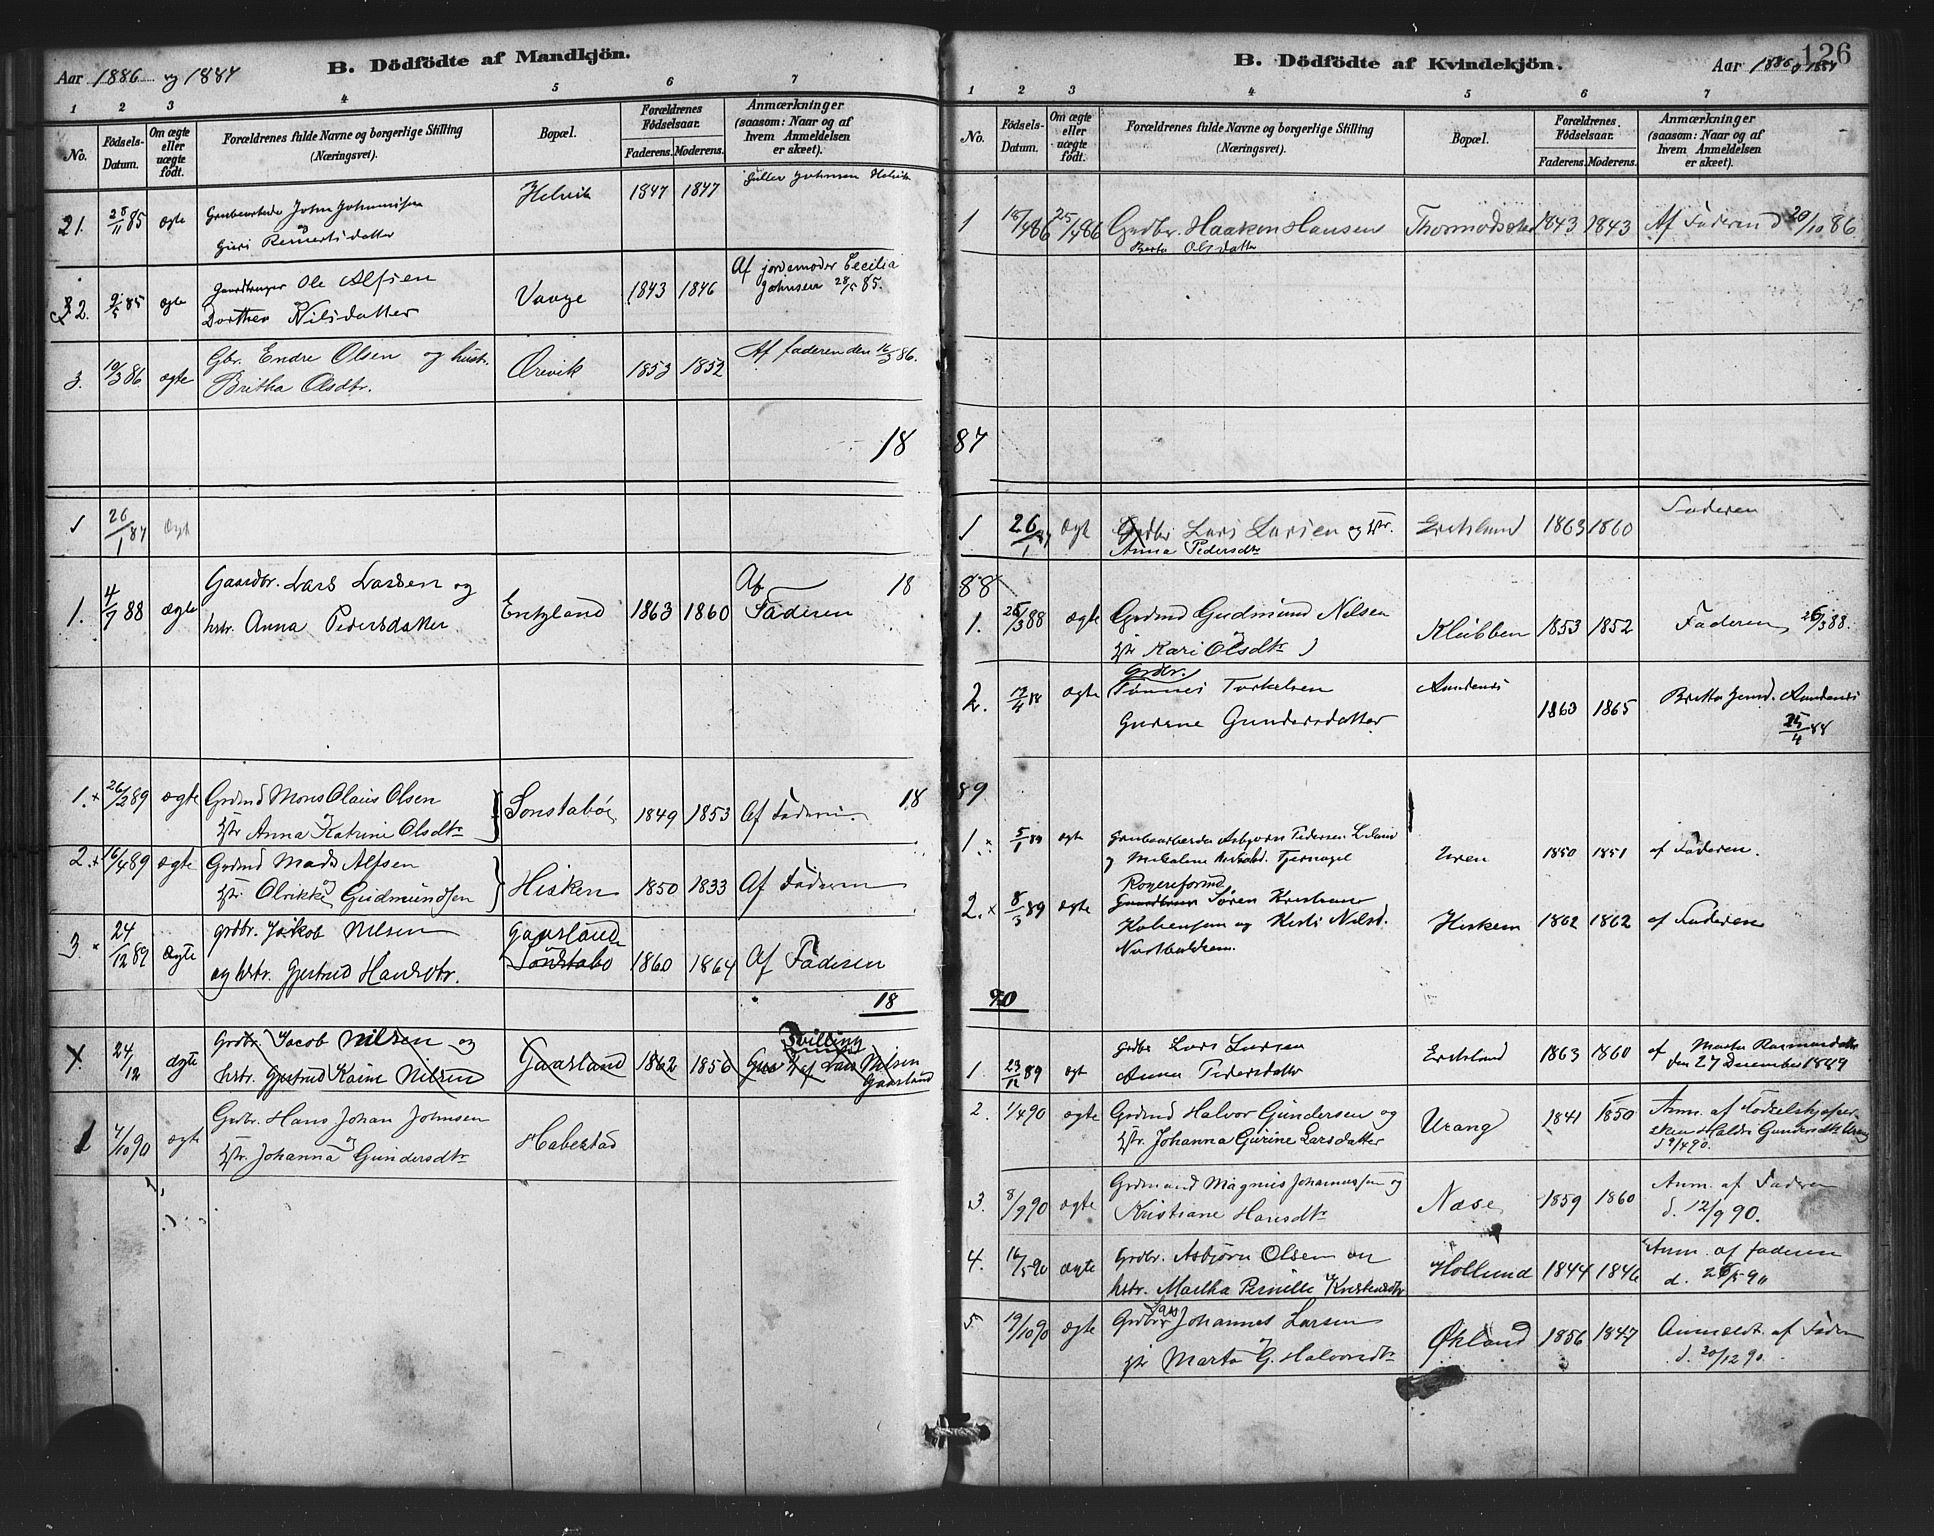 Aar 1886 og 1887
B. Dödfödte af Mandkjön.
1 2 3 4 5 6 7
No.
Födsels-Datum.
Om ægte eller uægte födt.
Forældrenes fulde Navne og borgerlige Stilling (Næringsvei).
Bopæl.
Forældrenes Födselsaar.
Faderens. Moderens.
Anmærkninger (saasom: Naar og af hvem Anmeldelsen er skeet).
21. 28/11 85 ægte Johannesen Helvik 1847 1847 Johnsen Helvik
Reinertsdatter
2. 9/5 85 ægte Ole Alfsen Vaage 1843 1846 Af jordemoder Cecilia
Dorthea Nilsdatter Johnsen 28/5 85.
3. 10/3 86 ægte Gbr. Endre Olsen og hustr. Ørevik 1853 1852 Af faderen den 16/3 86.
Britha Olsdtr.
18
1 26/1 87 Ægte
18
1. 4/7 88 ægte Gaardbr. Lars Larsen og Erikzland 1863 1860 Af Faderen
hstr. Anna Pedersdatter
18
1. x 26/2 89 ægte Grdmd Mons Olaus Olsen Sonstabø 1849 1853 Af Faderen
Hstr Anna Katrine Olsdtr
2. x 16/4 89 ægte Grdmd Mads Alfsen Hisken 1850 1833 Af Faderen
Hstr Olrikke Gudmundsen
3 x 24/12 89 Ægte grdbr. Jakob Nilsen Gaasland 1860 1864 Af Faderen
og hstr. Gjertrud Hansdtr. Sønstabø
18
1. 24/12 ægte Grdbr. Jacob Nilsen og Gaasland 1862 1856 Tvilling
hstr. Gjertrud Karine Nilsen af Lars Nilsen Gaasland
1 4/10 90 ægte Grdbr. Hans Johan Johnsen Habestad
Hstr. Johanna Gundersdtr
126
B. Dödfödte af Kvindekjön.
Aar 1886 og 1887
1 2 3 4 5 6 7
No.
Födsels-Datum.
Om ægte eller uægte födt.
Forældrenes fulde Navne og borgerlige Stilling (Næringsvei).
Bopæl.
Forældrenes Födselsaar.
Faderens. Moderens.
Anmærkninger (saasom: Naar og af hvem Anmeldelsen er skeet).
1 18/4 86 25/4 86 Grdbr. Haaken Hansen Thormodsæter 1843 1843 Af Faderen d 20/10 86
Berta Olsdatter
87
1 26/1 87 Ægte Grdbr Lars Larsen og Hstr. Eriksland 1863 1860 Faderen
Anna Pedersdtr
88
1. 25/3 88 ægte Grdmd Gudmund Nilsen Klubben 1853 1852 Faderen 26/3 88.
Hstr Kari Olsdtr
2. 17/4 88 ægte Grdbr. Tønnes Torkelsen Aandenes 1863 1865 Aandenes
Gurine Gundersdatter 25/4 88
89
1. x 5/1 89 ægte Grubearbeider Asbjørn Pedersen Uren 1850 1851 af Faderen.
2. x 8/3 89 ægte Gaardbruer Søren Kristian Hisken 1862 1862 af Faderen
og Kirsti Nilsd.
90
1. 23/12 89 ægt Grdbr Lars Larsen Eriksland 1863 1860 af Marta Rasmusdatter
Anna Pedersdatter den 27 December 1889
2. 1/4 90 ægte Grdmd Halvor Gundersen og Urang 1841 1850 Anm. af Fødselshjælper-
Hstr. Johanna Gurine Larsdatter sken Haldis Gundersdtr Urang
d 9/4 90.
3. 8/9 90 ægte Grdmand Magnus Johannessen og Næse 1859 1860 Anm. af Faderen
Kristiane Hansdtr d. 12/9 90.
4. 16/5 90 ægte Grdbr. Asbjørn Olsen og Hollund 1844 1846 Anm. af faderen
hstr. Martha Pernille Kristensdtr d. 26/5 90
5 19/10 90 ægte Grdbr Lars Johannes Larsen Økland 1856 1847 Anmeldt af Faderen
Hstr Marta G. Halvorsdtr d. 20/12 90.